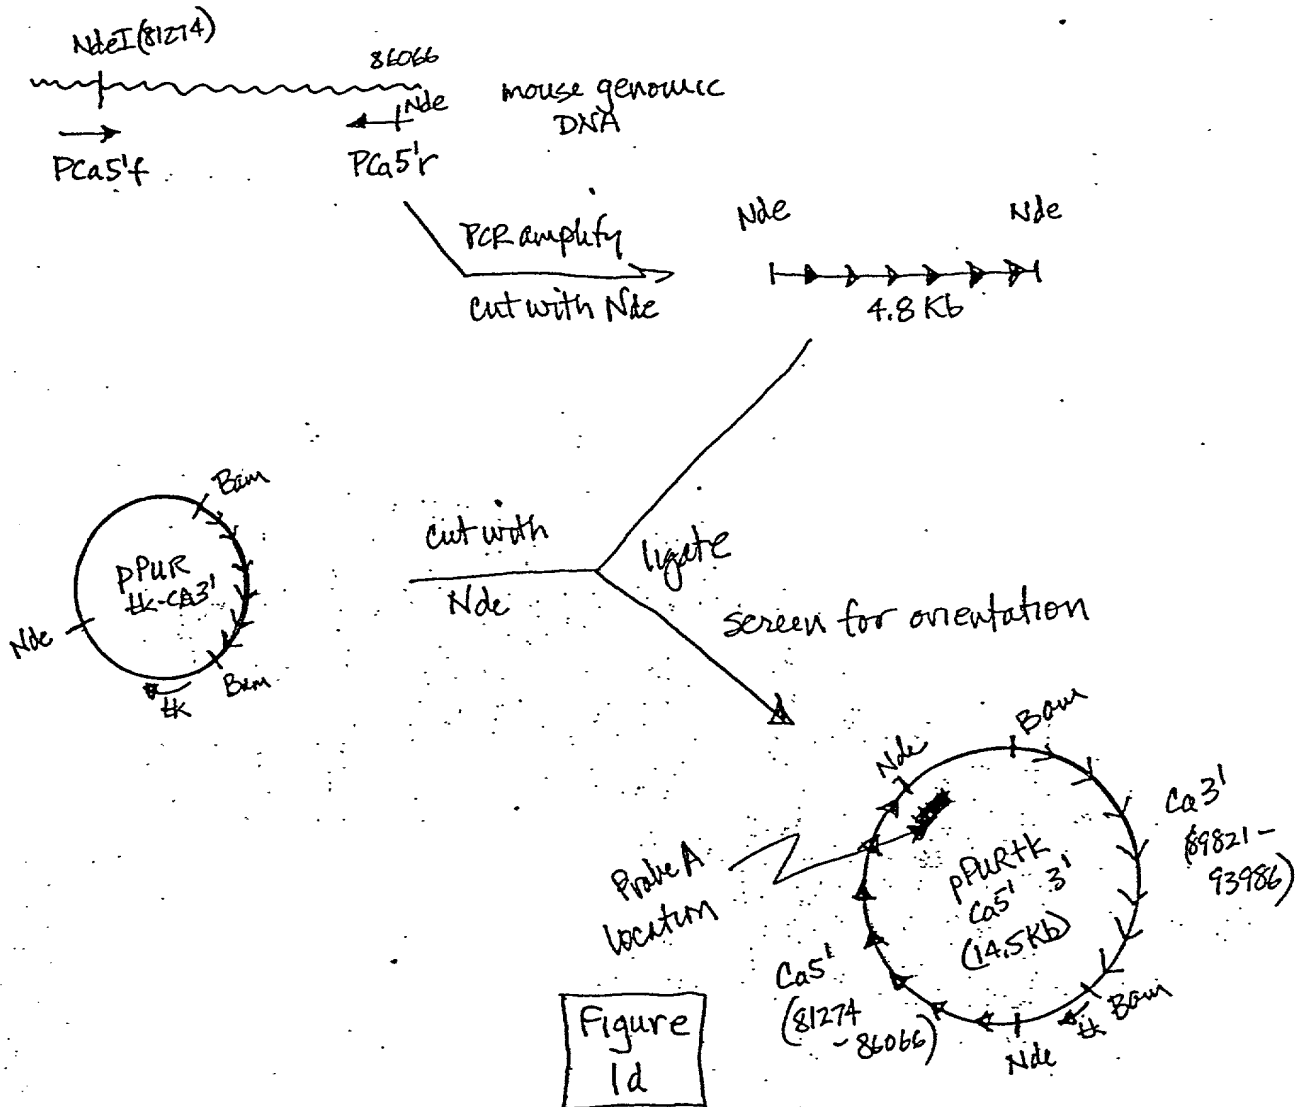 NdeI(81274)
86066
Nde
mouse genomic
DNA
PCa5'f
PCa5'r
PCR amplify
cut with Nde
Nde
Nde
4.8 Kb
Bam
pPUR
tk-CA3'
Nde
Bam
tk
cut with
Nde
ligate
screen for orientation
Nde
Bam
Ca3'
(89821-
93986)
Probe A
location
pPURtk
Ca5' 3'
(14.5Kb)
Ca5'
(81274
-86066)
Bam
tk
Nde
Figure
1d